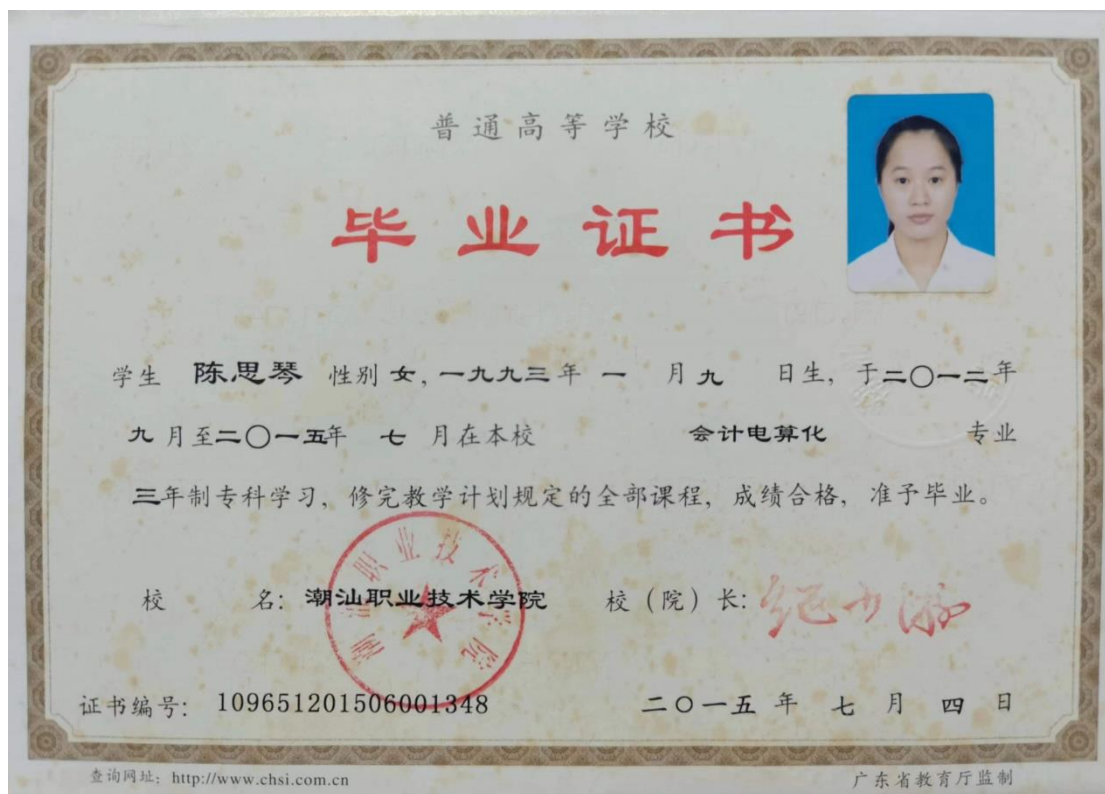 普通高等学校
毕业证书
学生 陈思琴 性别 女，一九九三年 一 月 九 日生，于二〇一二年
九月至二〇一五年 七 月在本校 会计电算化 专业
三年制专科学习，修完教学计划规定的全部课程，成绩合格，准予毕业。
潮汕职业技术学院
校 名：潮汕职业技术学院 校（院）长：
证书编号：109651201506001348 二〇一五 年 七 月 四 日
查询网址：http://www.chsi.com.cn 广东省教育厅监制